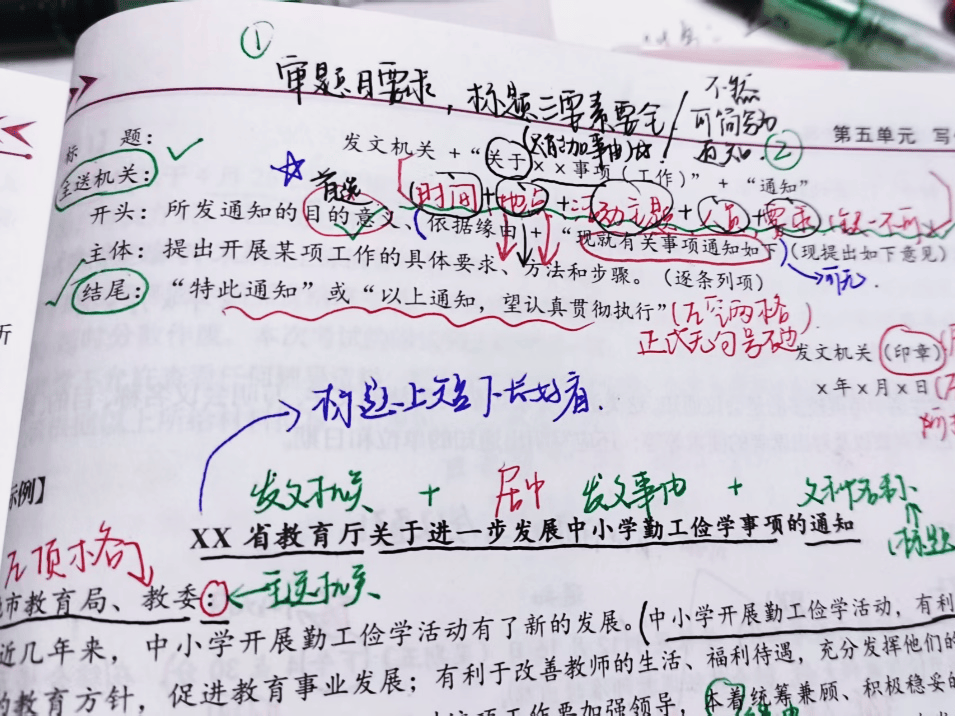 ①
审题目要求，标题三要素要全！
不然
可简写为
通知.
②
第五单元 写
标 题：
发文机关 + “关于××事项（工作）” + “通知”
主送机关：
首选
（时间+地点+活动主题+人员+要求
开头：所发通知的目的意义、依据缘由 + “现就有关事项通知如下（现提出如下意见）
主体：提出开展某项工作的具体要求、方法和步骤。（逐条列项）
可无.
结尾：“特此通知”或“以上通知，望认真贯彻执行”
（左空两格）
正式无句号
发文机关（印章）
×年×月×日
标题上短下长好看.
示例】
发文机关 + 居中 发文事由 + 文种名称
标题
XX 省教育厅关于进一步发展中小学勤工俭学事项的通知
左顶格
市教育局、教委：
主送机关
近几年来，中小学开展勤工俭学活动有了新的发展。（中小学开展勤工俭学活动，有利
的教育方针，促进教育事业发展；有利于改善教师的生活、福利待遇，充分发挥他们的
项工作要加强领导，本着统筹兼顾、积极稳妥的